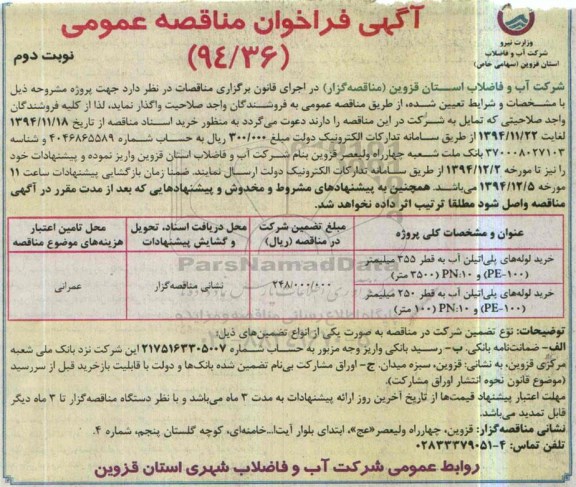 آگهی فراخوان مناقصه عمومی
(۹۴/۳۶)
نوبت دوم
وزارت نیرو
شرکت آب و فاضلاب
استان قزوین (سهامی خاص)
شرکت آب و فاضلاب استان قزوین (مناقصه‌گزار) در اجرای قانون برگزاری مناقصات در نظر دارد جهت پروژه مشروحه ذیل
با مشخصات و شرایط تعیین شده، از طریق مناقصه عمومی به فروشندگان واجد صلاحیت واگذار نماید، لذا از کلیه فروشندگان
واجد صلاحیتی که تمایل به شرکت در این مناقصه را دارند دعوت می‌گردد به منظور خرید اسناد مناقصه از تاریخ ۱۳۹۴/۱۱/۱۸
لغایت ۱۳۹۴/۱۱/۲۲ از طریق سامانه تدارکات الکترونیک دولت مبلغ ۳۰۰/۰۰۰ ریال به حساب شماره ۴۰۴۶۸۶۵۵۸۹ و شناسه
۳۷۰۰۰۸۰۲۷۱۰۳ بانک ملت شعبه چهارراه ولیعصر قزوین بنام شرکت آب و فاضلاب استان قزوین واریز نموده و پیشنهادات خود
را نیز تا مورخه ۱۳۹۴/۱۲/۲ از طریق سامانه تدارکات الکترونیک دولت ارسال نمایند. ضمنا زمان بازگشایی پیشنهادات ساعت ۱۱
مورخه ۱۳۹۴/۱۲/۵ می‌باشد. همچنین به پیشنهادهای مشروط و مخدوش و پیشنهادهایی که بعد از مدت مقرر در آگهی
مناقصه واصل شود مطلقا ترتیب اثر داده نخواهد شد.
عنوان و مشخصات کلی پروژه
مبلغ تضمین شرکت در مناقصه (ریال)
محل دریافت اسناد، تحویل و گشایش پیشنهادات
محل تامین اعتبار هزینه‌های موضوع مناقصه
خرید لوله‌های پلی‌اتیلن آب به قطر ۳۵۵ میلیمتر
(PE-۱۰۰) و PN:۱۰ (۳۵۰۰ متر)
خرید لوله‌های پلی‌اتیلن آب به قطر ۲۵۰ میلیمتر
(PE-۱۰۰) و PN:۱۰ (۱۰۰ متر)
۲۴۸/۰۰۰/۰۰۰
نشانی مناقصه‌گزار
عمرانی
ParsNamadData
توضیحات: نوع تضمین شرکت در مناقصه به صورت یکی از انواع تضمین‌های ذیل:
الف- ضمانت‌نامه بانکی. ب- رسید بانکی واریز وجه مزبور به حساب شماره ۲۱۷۵۱۶۳۳۰۵۰۰۷ این شرکت نزد بانک ملی شعبه
مرکزی قزوین، به نشانی: قزوین، سبزه میدان. ج- اوراق مشارکت بی‌نام تضمین شده بانک‌ها و دولت با قابلیت بازخرید قبل از سررسید
(موضوع قانون نحوه انتشار اوراق مشارکت).
مهلت اعتبار پیشنهاد قیمت‌ها از تاریخ آخرین روز ارائه پیشنهادات به مدت ۳ ماه می‌باشد و با نظر دستگاه مناقصه‌گزار تا ۳ ماه دیگر
قابل تمدید می‌باشد.
نشانی مناقصه‌گزار: قزوین، چهارراه ولیعصر«عج»، ابتدای بلوار آیت‌ا...خامنه‌ای، کوچه گلستان پنجم، شماره ۴.
تلفن تماس: ۴-۰۲۸۳۳۳۷۹۰۵۱
روابط عمومی شرکت آب و فاضلاب شهری استان قزوین